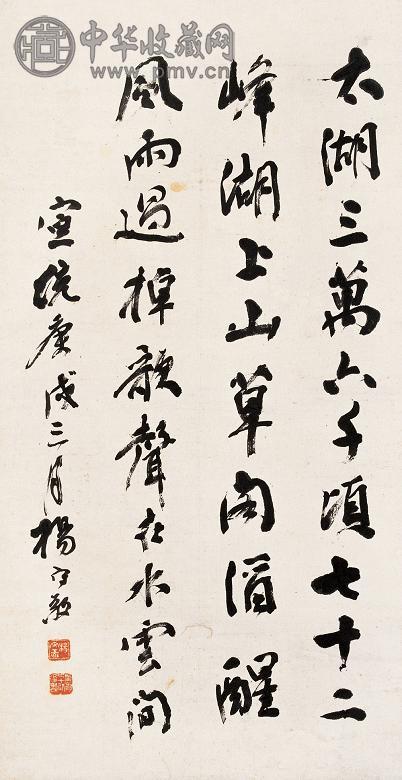 中华收藏网
www.pmv.cn
太湖三萬六千頃七十二
峰湖上山草閣酒醒
風雨過棹歌聲在水雲間
宣統庚戌三月楊守敬